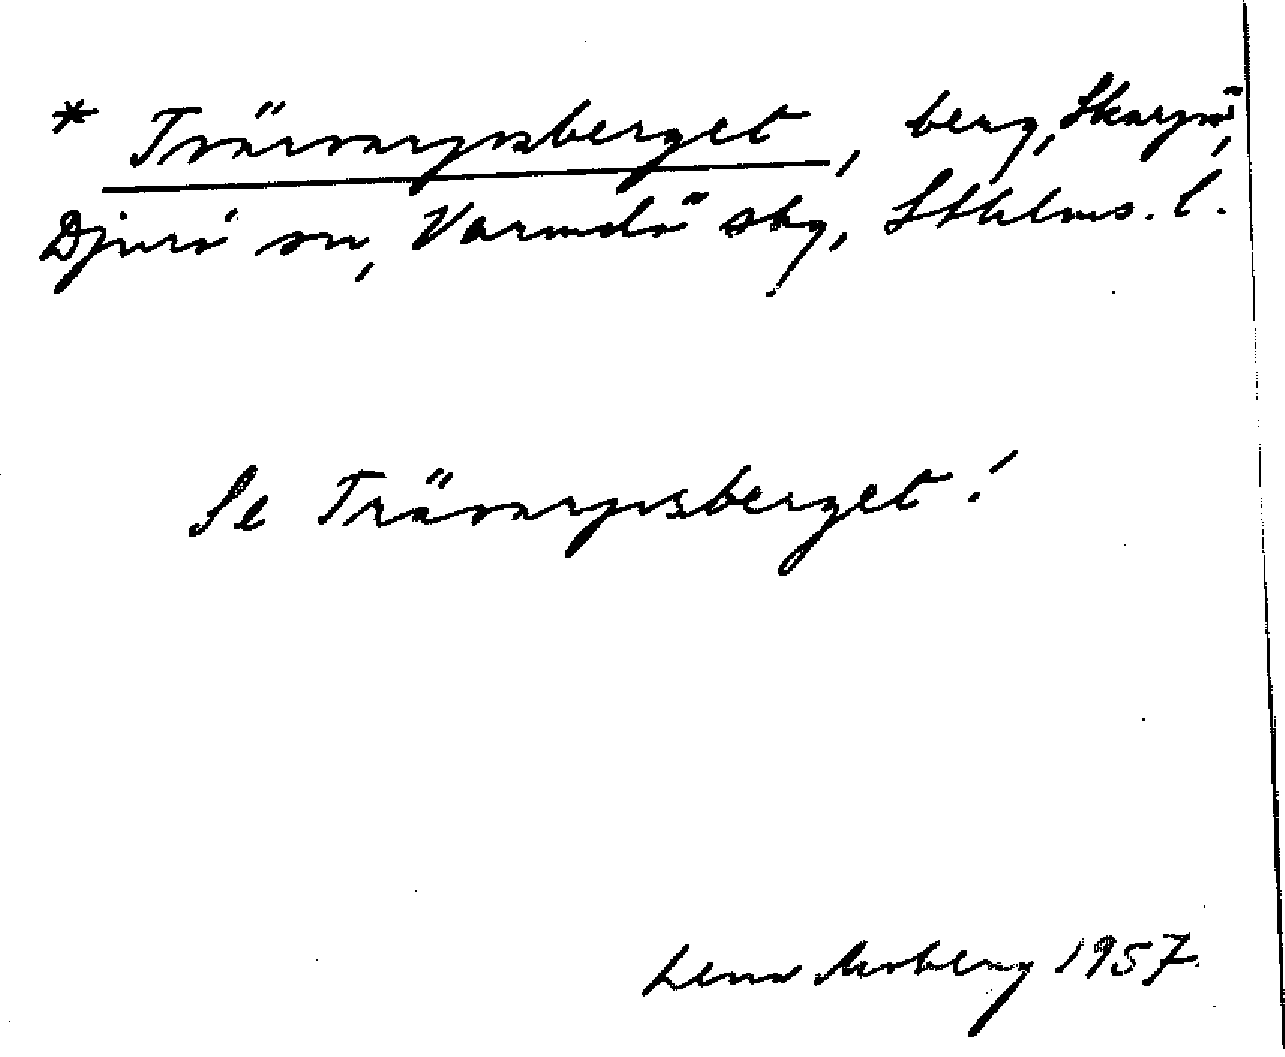 * Tvärvarpsberget, berg, Skarpö,
Djurö sn, Värmdö skg, Sthlms. l.
Se Trävarpsberget!
Lena Moberg 1957.